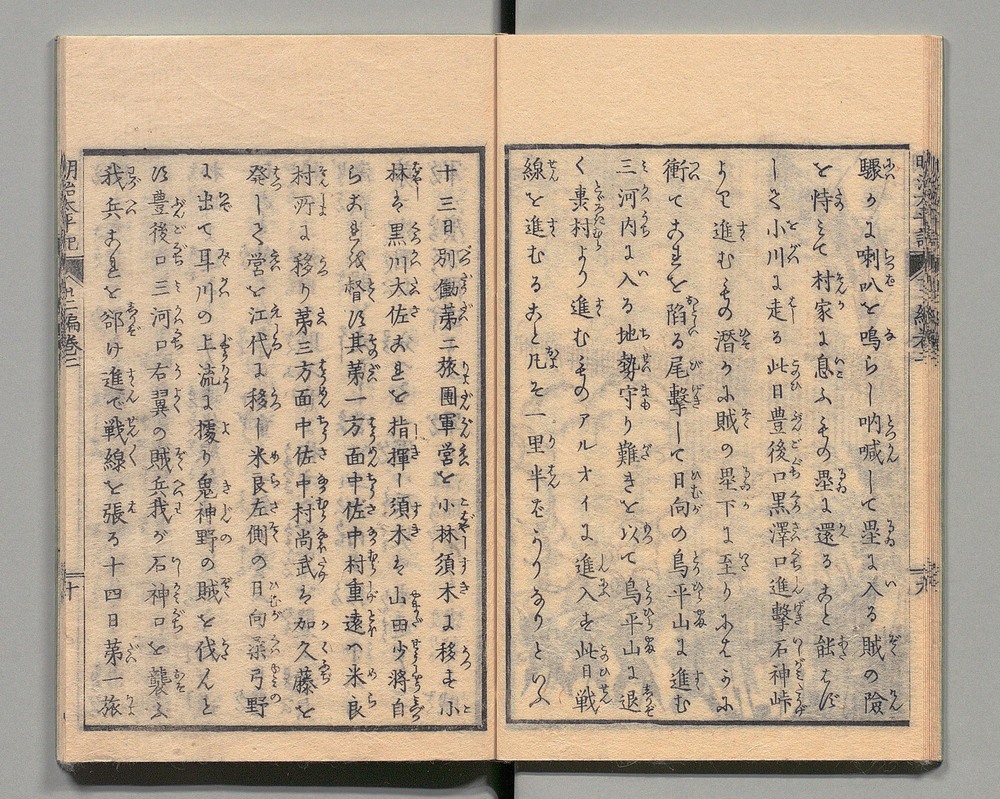 驟かに喇叭を鳴らし吶喊して塁に入る賊の險
を恃みて村家に息ふもの塁に還るあと能はず
して小川に走る此日豊後口黒澤口進撃石神峠
より進むもの潜かに賊の塁下に至りふたかに
衝てこれを陥る尾撃して日向の鳥平山に進む
三河内に入る地勢守り難きを以て鳥平山に退
く裏村より進むものアルオイに進入す此日戦
線を進むること凡そ一里半ばかりなりといふ
十三日別働第二旅團軍営を小林須木に移す小
林は黒川大佐これを指揮し須木は山田少将自
らこれを督す其第一方面中佐中村重遠は米良
村所に移り第三方面中佐中村尚武は加久藤を
発して営を江代に移し米良左側の日向弓野
に出て耳川の上流に據り鬼神野の賊を伐んと
す豊後口三河口右翼の賊兵我が石神口を襲ふ
我兵これを郤け進で戦線を張る十四日第一旅
明治太平記
廿二編巻二
十
九